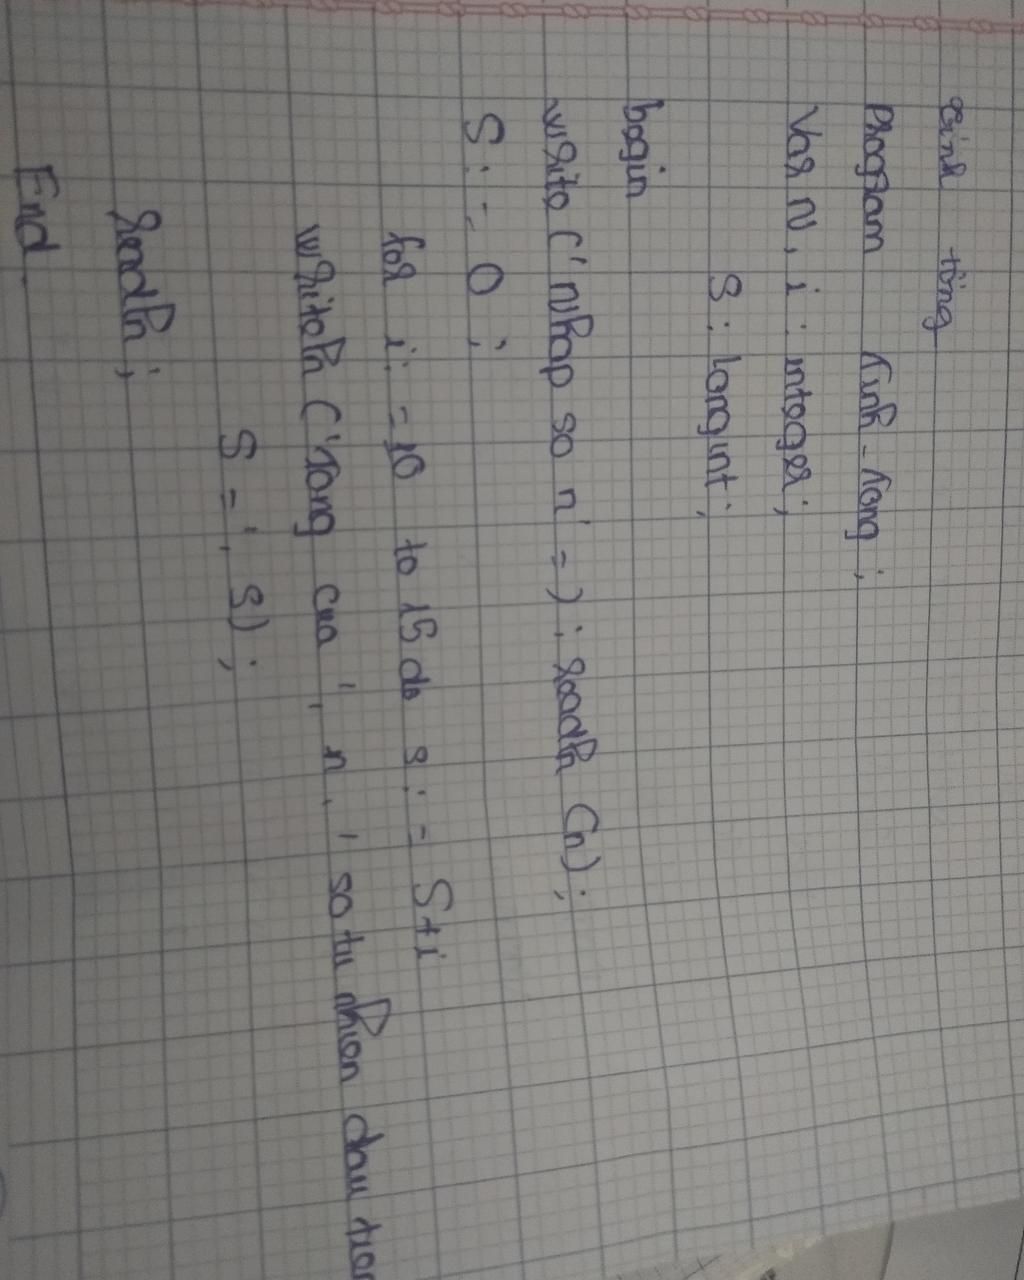 Tính tổng
Program Tinh-Tong;
Var N, i : integer;
S : longint;
begin
write ('Nhap so n' =); readln (n);
S := 0 ;
for i:=10 to 15 do s := S+i
writeln ('Tong cua ', n, ' so tu nhien dau tien
S = ', S);
readln ;
End.